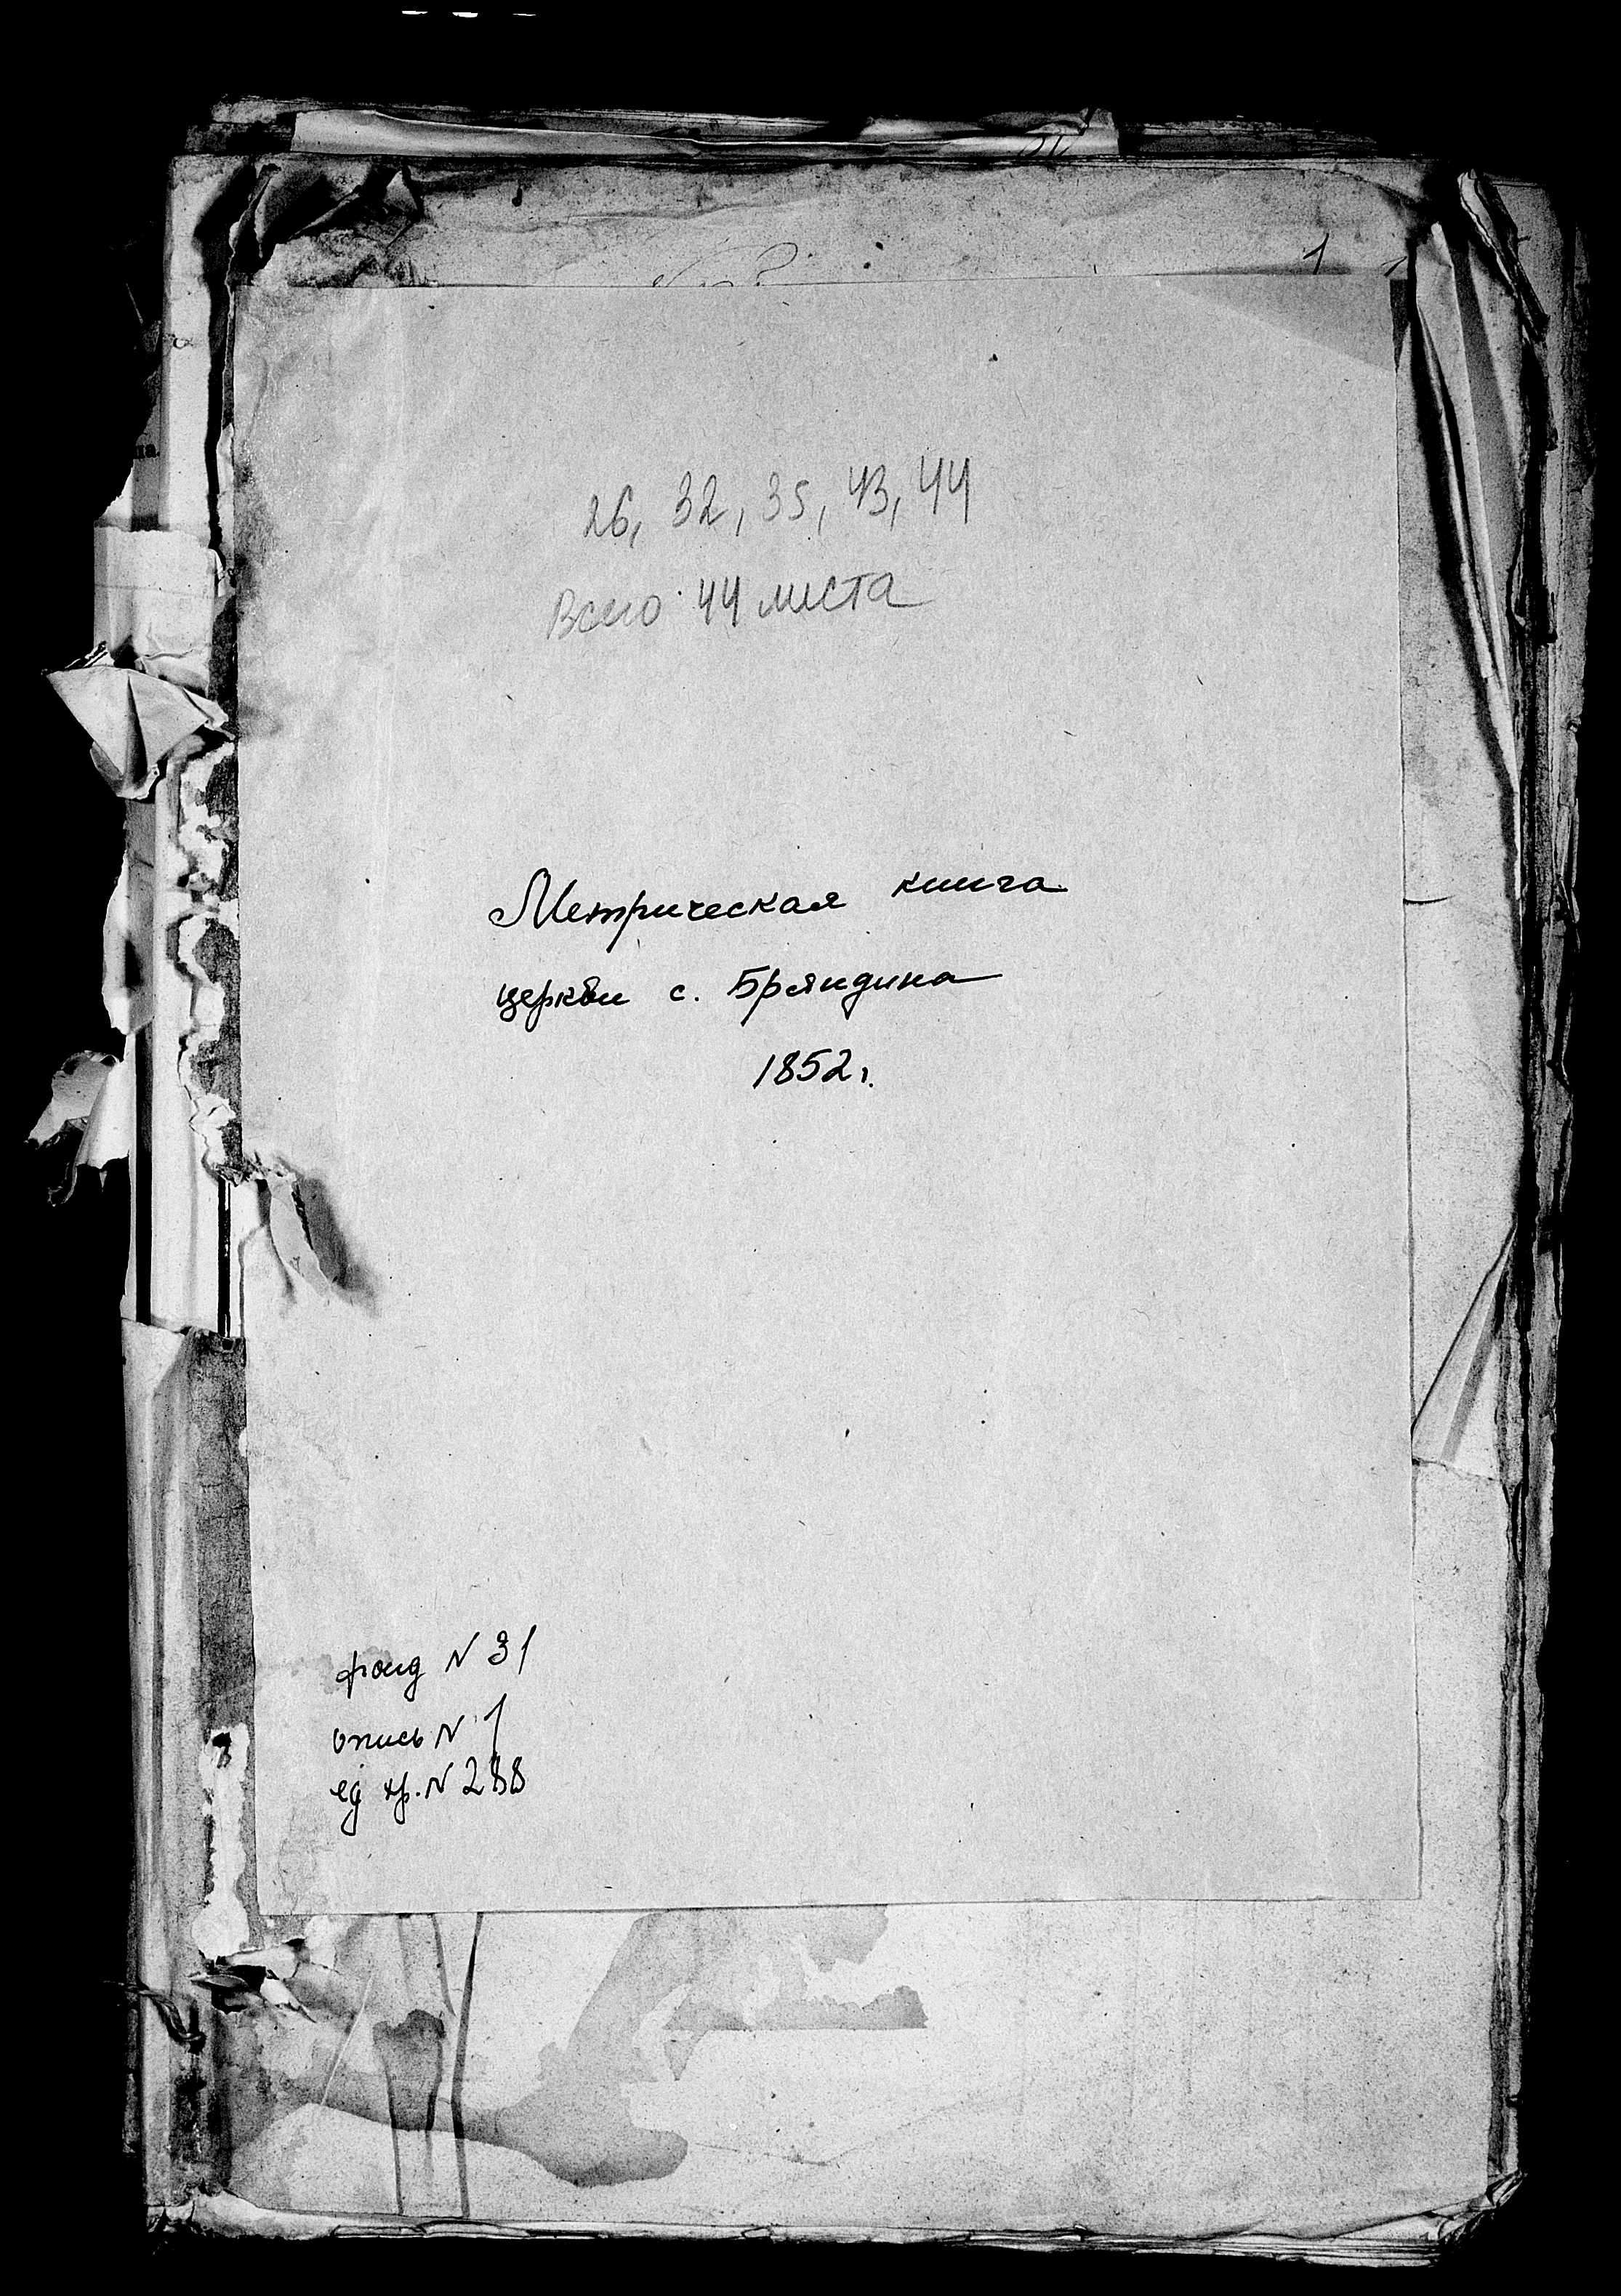 1
26, 32, 35, 43, 44
Всего 44 листа
Метрическая книга
церкви с. Бряндина
1852г.
фонд N 31
опись N 1
ед хр. N 288